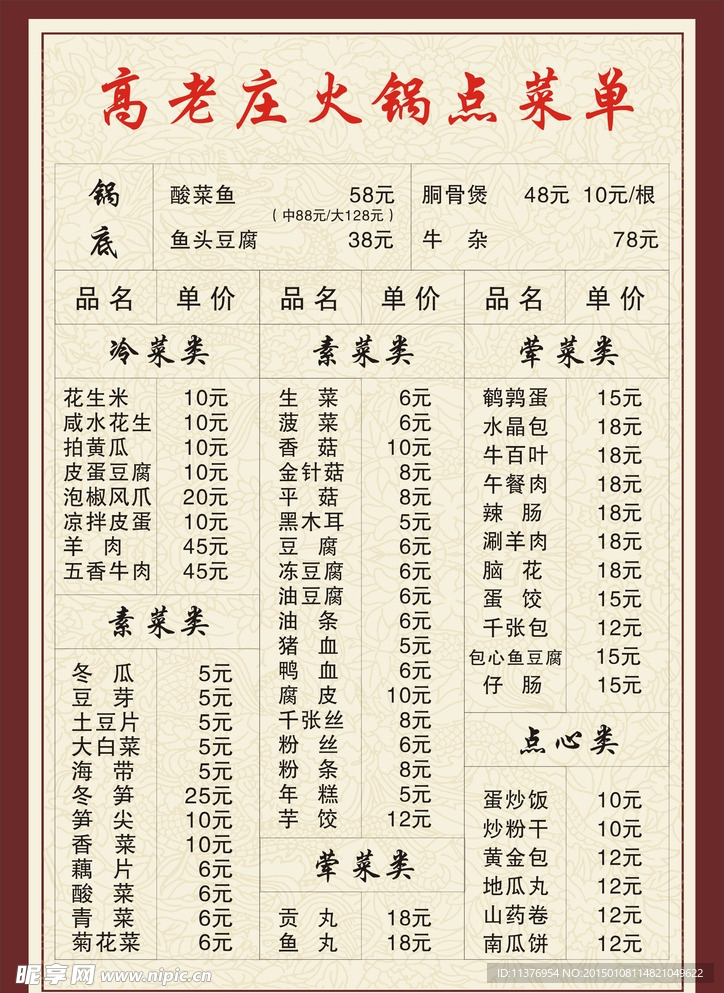 高老庄火锅点菜单
锅底
酸菜鱼 58元
（中88元/大128元）
鱼头豆腐 38元
胴骨煲 48元 10元/根
牛杂 78元
品名 单价 品名 单价 品名 单价
冷菜类
花生米 10元
咸水花生 10元
拍黄瓜 10元
皮蛋豆腐 10元
泡椒风爪 20元
凉拌皮蛋 10元
羊肉 45元
五香牛肉 45元
素菜类
冬瓜 5元
豆芽 5元
土豆片 5元
大白菜 5元
海带 5元
冬笋 25元
笋尖 10元
香菜 10元
藕片 6元
酸菜 6元
青菜 6元
菊花菜 6元
素菜类
生菜 6元
菠菜 6元
香菇 10元
金针菇 8元
平菇 8元
黑木耳 5元
豆腐 6元
冻豆腐 6元
油豆腐 6元
油条 6元
猪血 5元
鸭血 6元
腐皮 10元
千张丝 8元
粉丝 6元
粉条 8元
年糕 5元
芋饺 12元
荤菜类
贡丸 18元
鱼丸 18元
荤菜类
鹌鹑蛋 15元
水晶包 18元
牛百叶 18元
午餐肉 18元
辣肠 18元
涮羊肉 18元
脑花 18元
蛋饺 15元
千张包 12元
包心鱼豆腐 15元
仔肠 15元
点心类
蛋炒饭 10元
炒粉干 10元
黄金包 12元
地瓜丸 12元
山药卷 12元
南瓜饼 12元
昵享网 www.nipic.cn
ID:11376954 NO:20150108114821049622